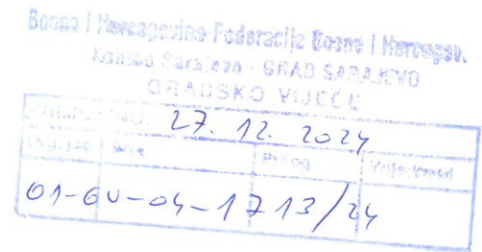 Bosna i Hercegovina-Federacija Bosne i Hercegov.
Kanton Sarajevo - GRAD SARAJEVO
GRADSKO VIJEĆE
27. 12. 2024
Prilog
01-GV-04-1713/24